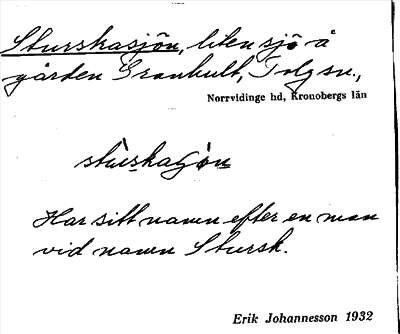 Sturskasjön, liten sjö å
gården Granhult, Tolg sn.,
Norrvidinge hd, Kronobergs län
Har sitt namn efter en man
vid namn Stursk.
Erik Johannesson 1932